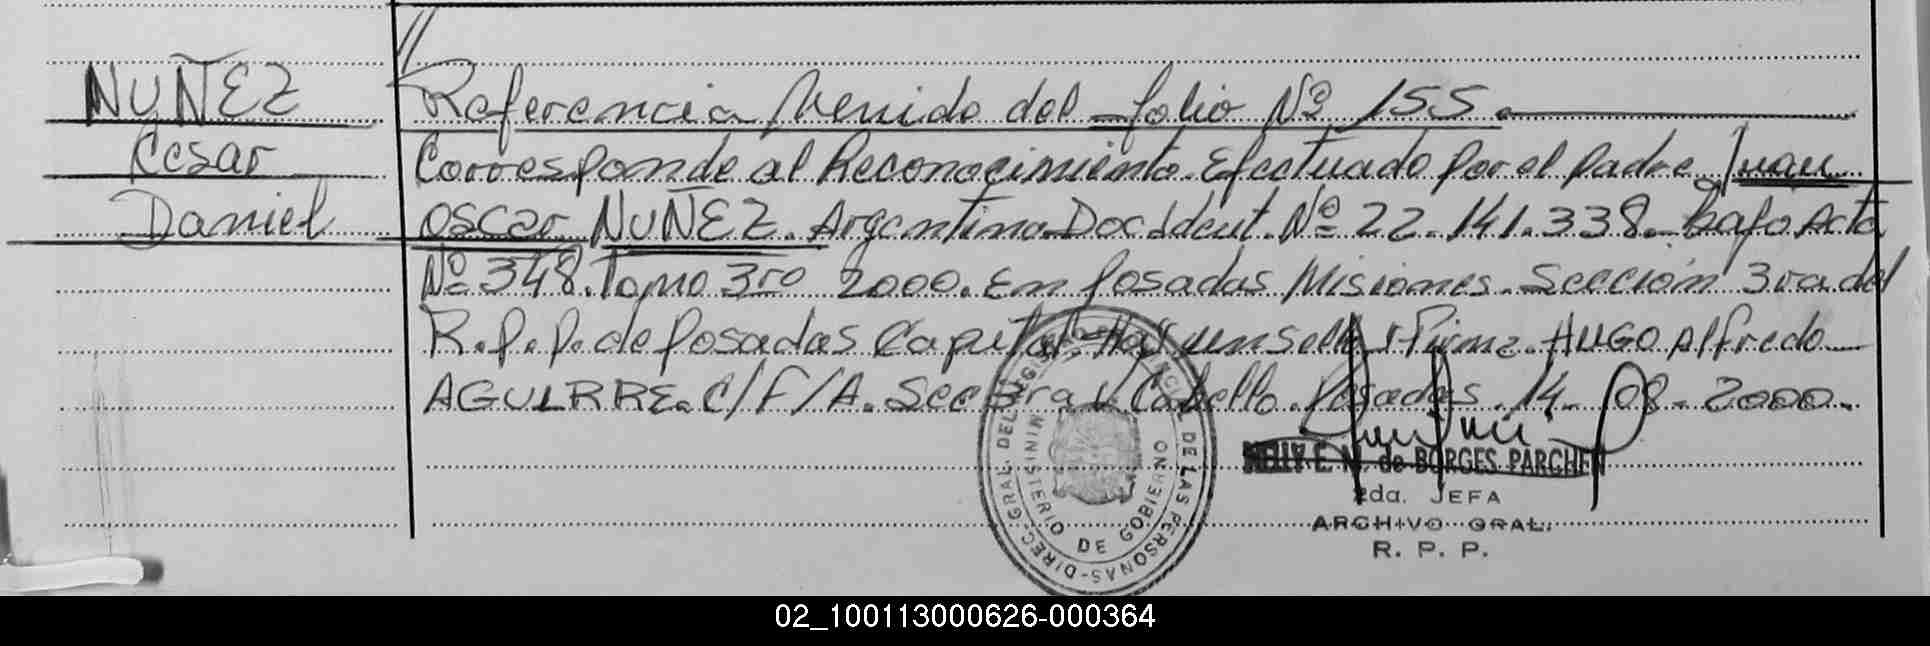 NUÑEZ
Cesar
Daniel
// Referencia Venido del folio Nº 155.
Corresponde al Reconocimiento Efectuado por el padre Juan
Oscar NUÑEZ. Argentino Doc. Ident. Nº 22.141.338. bajo Acta
Nº 348. Tomo 3ro 2000. En Posadas Misiones. Sección 3ra del
R.P.P. de Posadas Capital. Hay un Sello y Firma. HUGO Alfredo
AGUIRRE. C/F/A. Posadas. 14-08-2000.
DIREC. GRAL. DEL DE LAS PERSONAS
MINISTERIO DE GOBIERNO
E. M. de BORGES PARCHEN
2da. JEFA
ARCHIVO GRAL.
R. P. P.
02_100113000626-000364